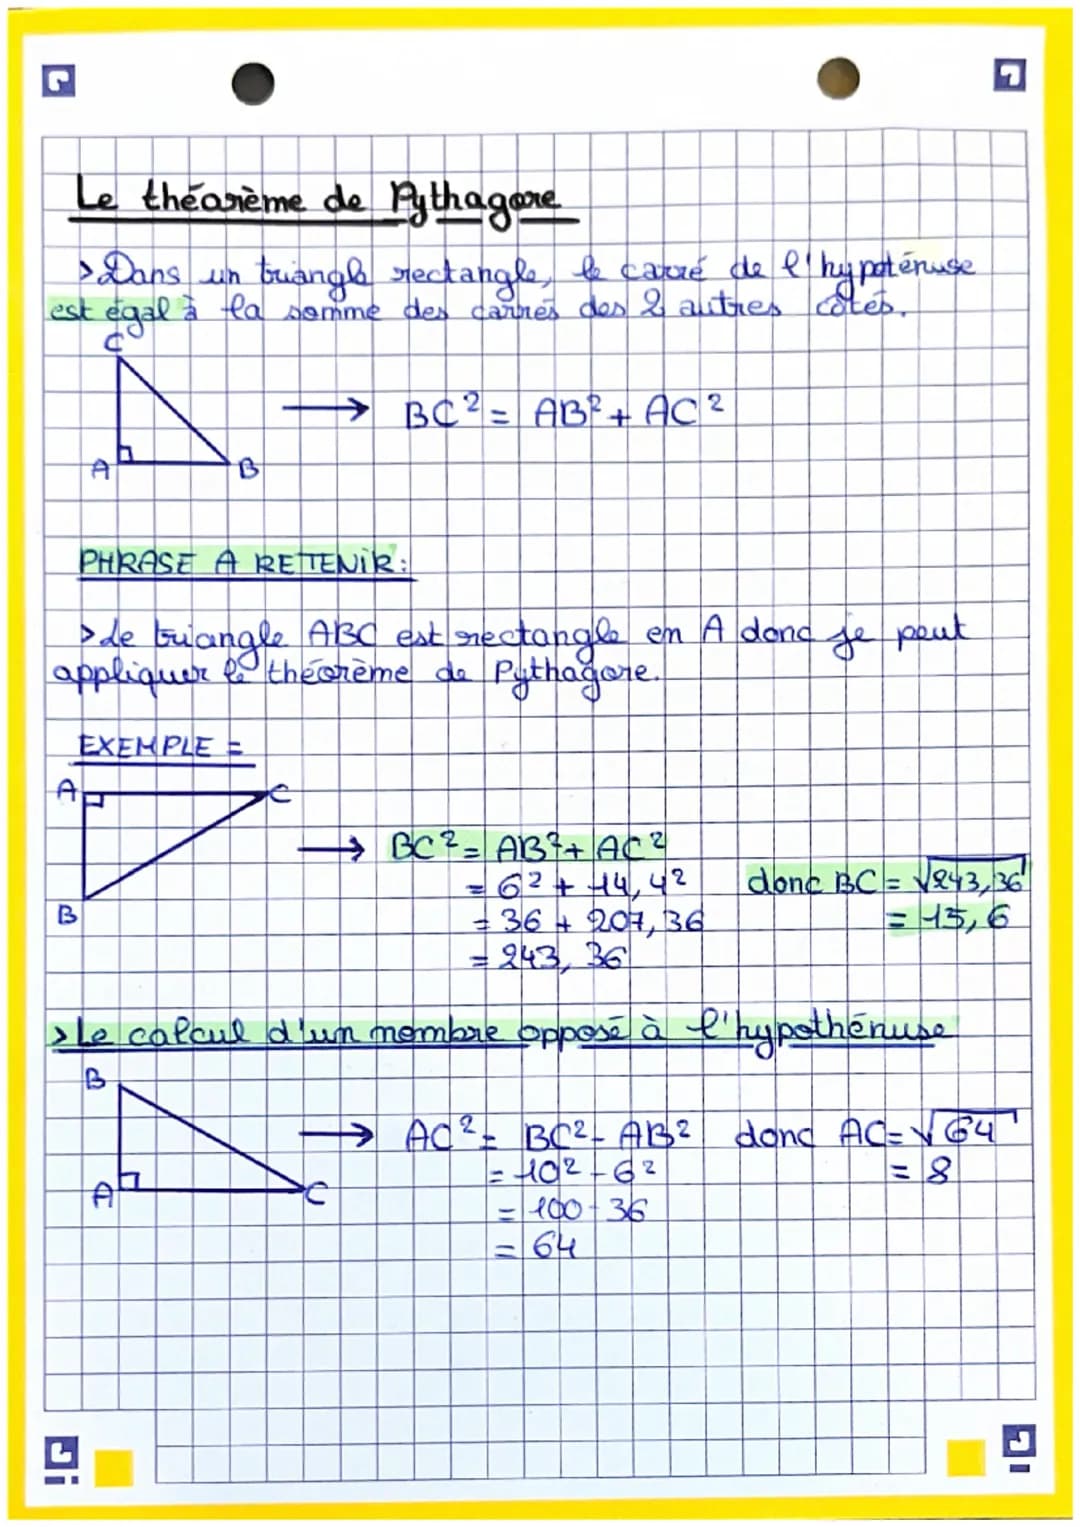 Le théorème de Pythagore
> Dans un triangle rectangle, le carré de l'hypoténuse
est égal à la somme des carrés des 2 autres côtés.
C
→ BC² = AB² + AC²
A B
PHRASE A RETENIR:
> Le triangle ABC est rectangle en A donc je peut
appliquer le théorème de Pythagore.
EXEMPLE =
A C
→ BC² = AB² + AC²
= 6² + 14,4² donc BC = √243,36
B = 36 + 207,36 = 15,6
= 243,36
> Le calcul d'un membre opposé à l'hypothénuse
B
→ AC² = BC² - AB² donc AC = √64
= 10² - 6² = 8
A C
= 100 - 36
= 64